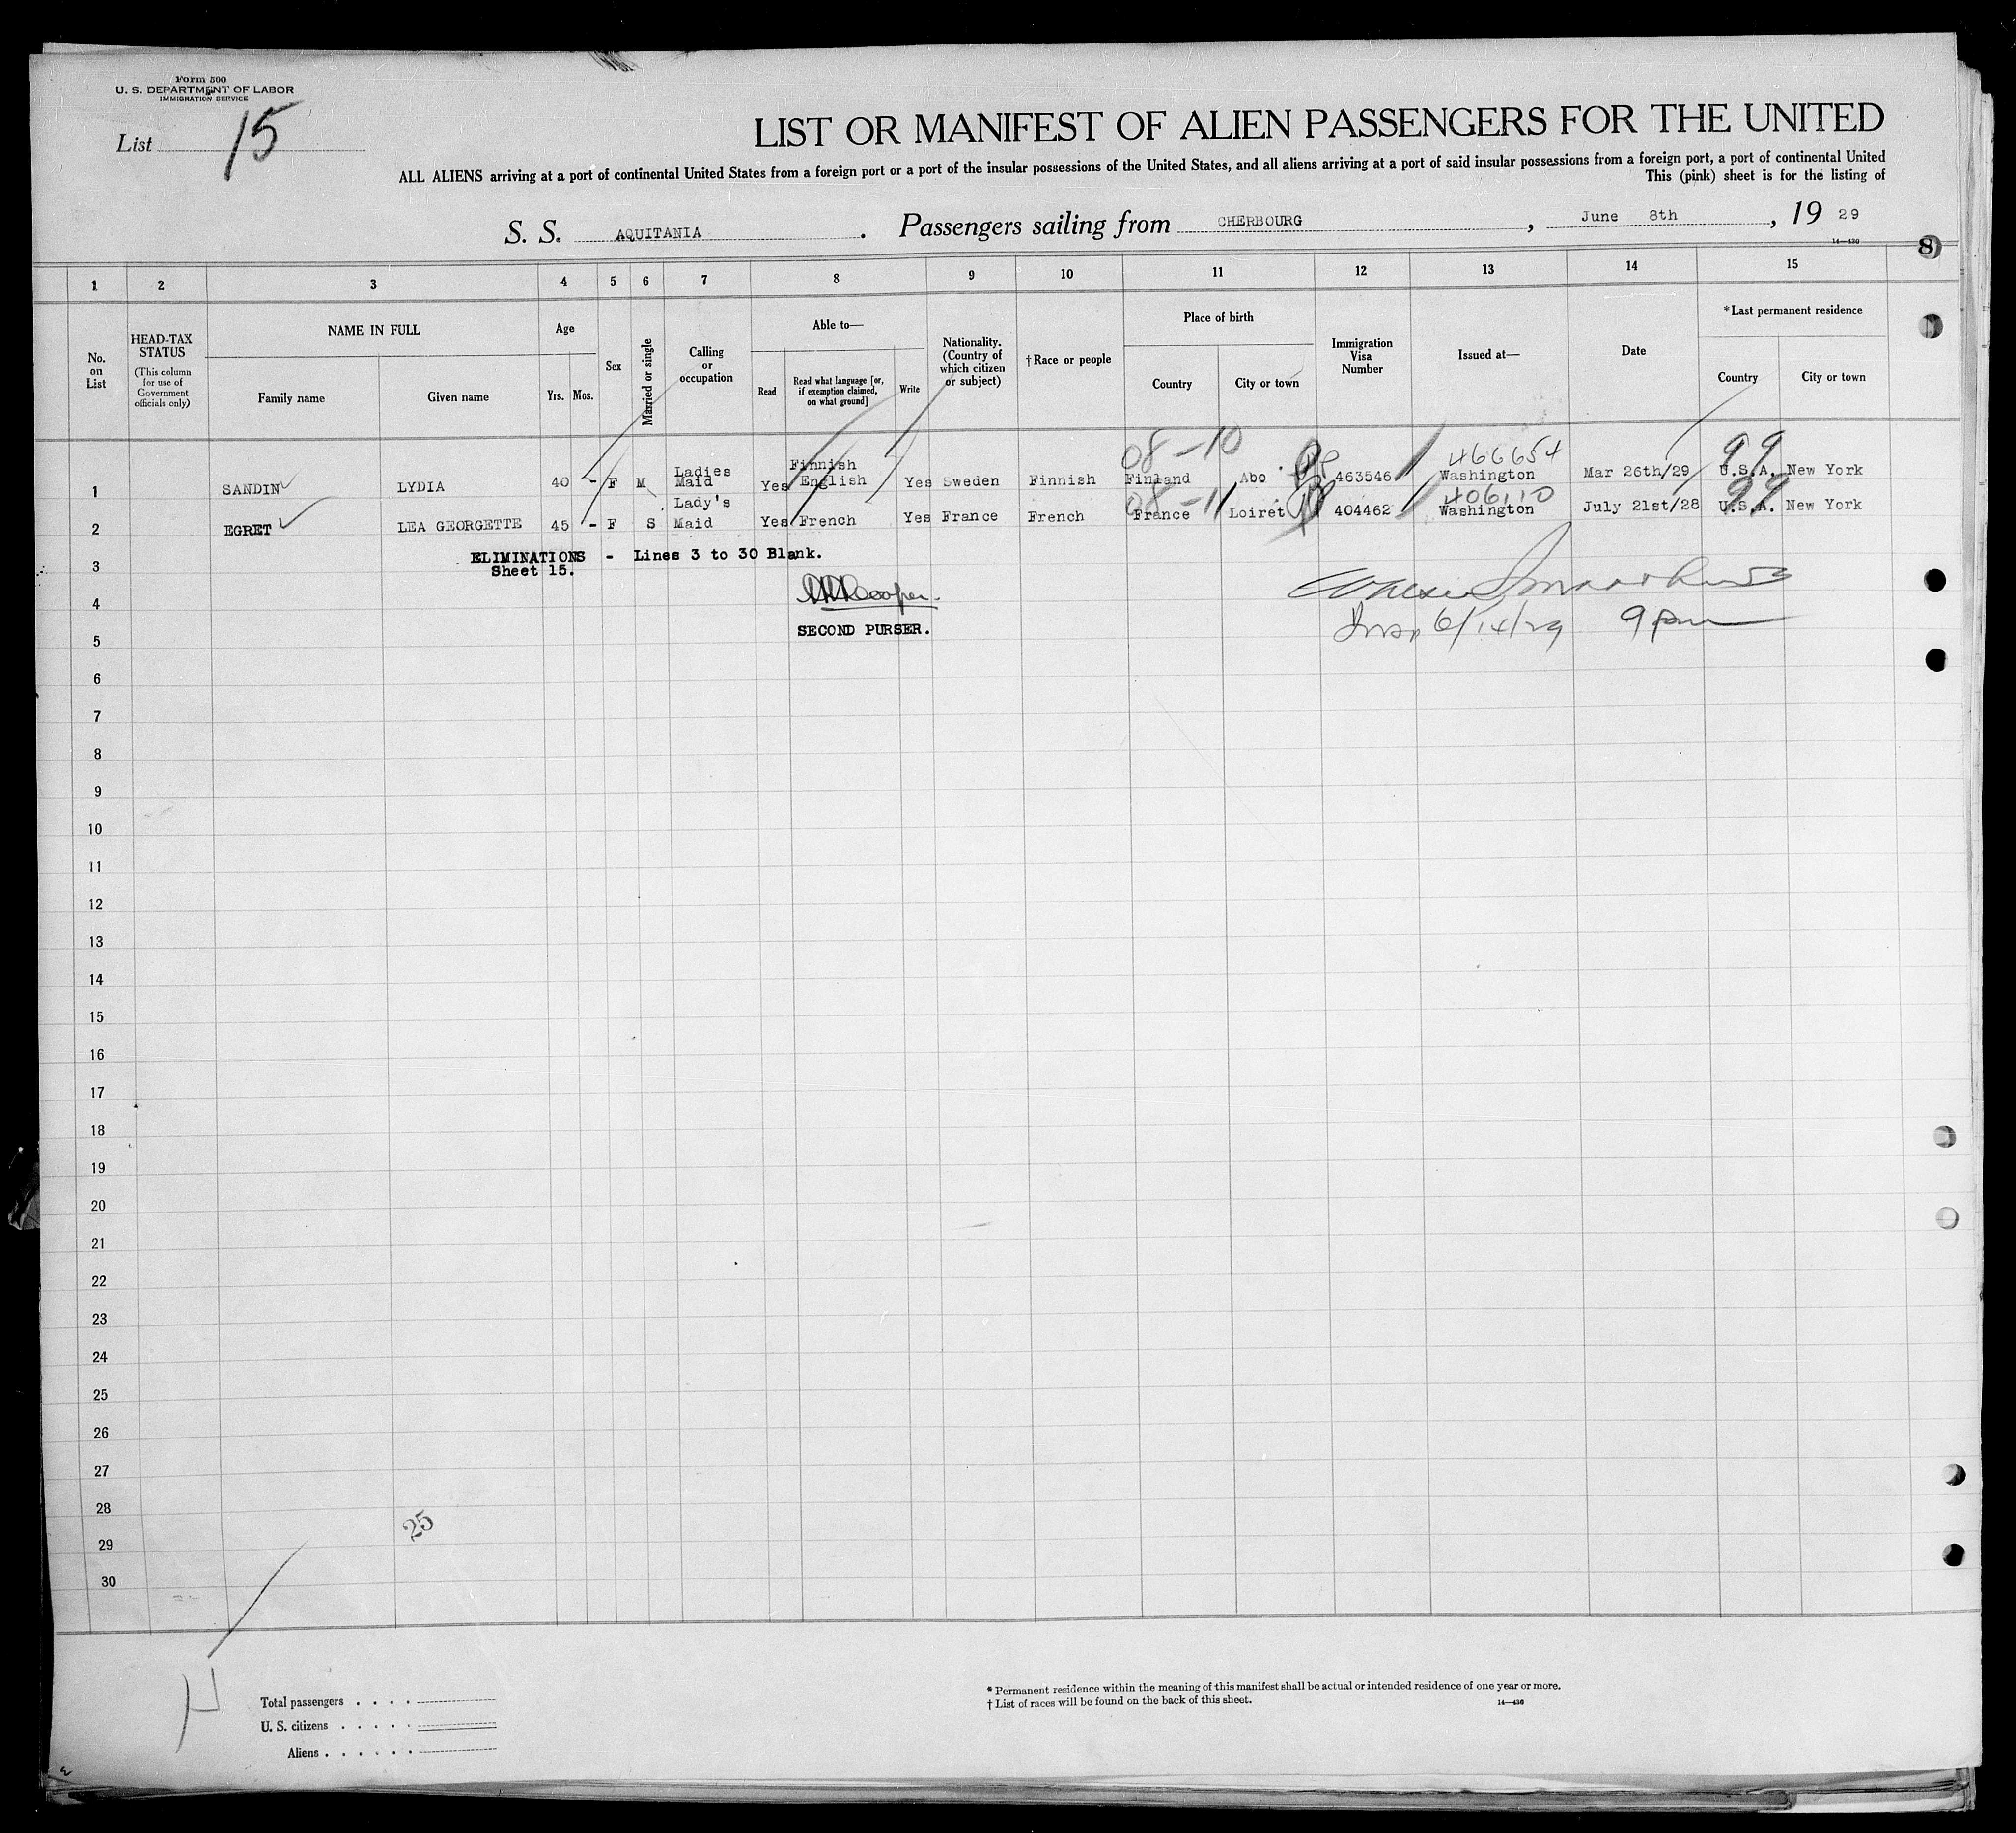 Form 500
U. S. DEPARTMENT OF LABOR
IMMIGRATION SERVICE
List 15
LIST OR MANIFEST OF ALIEN PASSENGERS FOR THE UNITED
ALL ALIENS arriving at a port of continental United States from a foreign port or a port of the insular possessions of the United States, and all aliens arriving at a port of said insular possessions from a foreign port, a port of continental United
This (pink) sheet is for the listing of
S. S. AQUITANIA. Passengers sailing from CHERBOURG, June 8th, 19 29
14—430
8
1 2 3 4 5 6 7 8 9 10 11 12 13 14 15
No. on List
HEAD-TAX STATUS
(This column for use of Government officials only)
NAME IN FULL
Family name
Given name
Age
Yrs. Mos.
Sex
Married or single
Calling or occupation
Able to—
Read
Read what language [or, if exemption claimed, on what ground]
Write
Nationality. (Country of which citizen or subject)
†Race or people
Place of birth
Country
City or town
Immigration Visa Number
Issued at—
Date
*Last permanent residence
Country
City or town
08-10 466654 99
1 SANDIN LYDIA 40 - F M Ladies Maid Yes Finnish English Yes Sweden Finnish Finland Abo 463546 Washington Mar 26th/29 U.S.A. New York
08-11 406110 99
2 EGRET LEA GEORGETTE 45 - F S Lady's Maid Yes French Yes France French France Loiret 404462 Washington July 21st/28 U.S.A. New York
ELIMINATIONS - Lines 3 to 30 Blank.
Sheet 15.
3
4 Cooper.
5 SECOND PURSER.
6/14/29 9 pm
6
7
8
9
10
11
12
13
14
15
16
17
18
19
20
21
22
23
24
25
26
27
28
25
29
30
Total passengers . . . .
U. S. citizens . . . . .
Aliens . . . . . .
* Permanent residence within the meaning of this manifest shall be actual or intended residence of one year or more.
† List of races will be found on the back of this sheet.
14—430